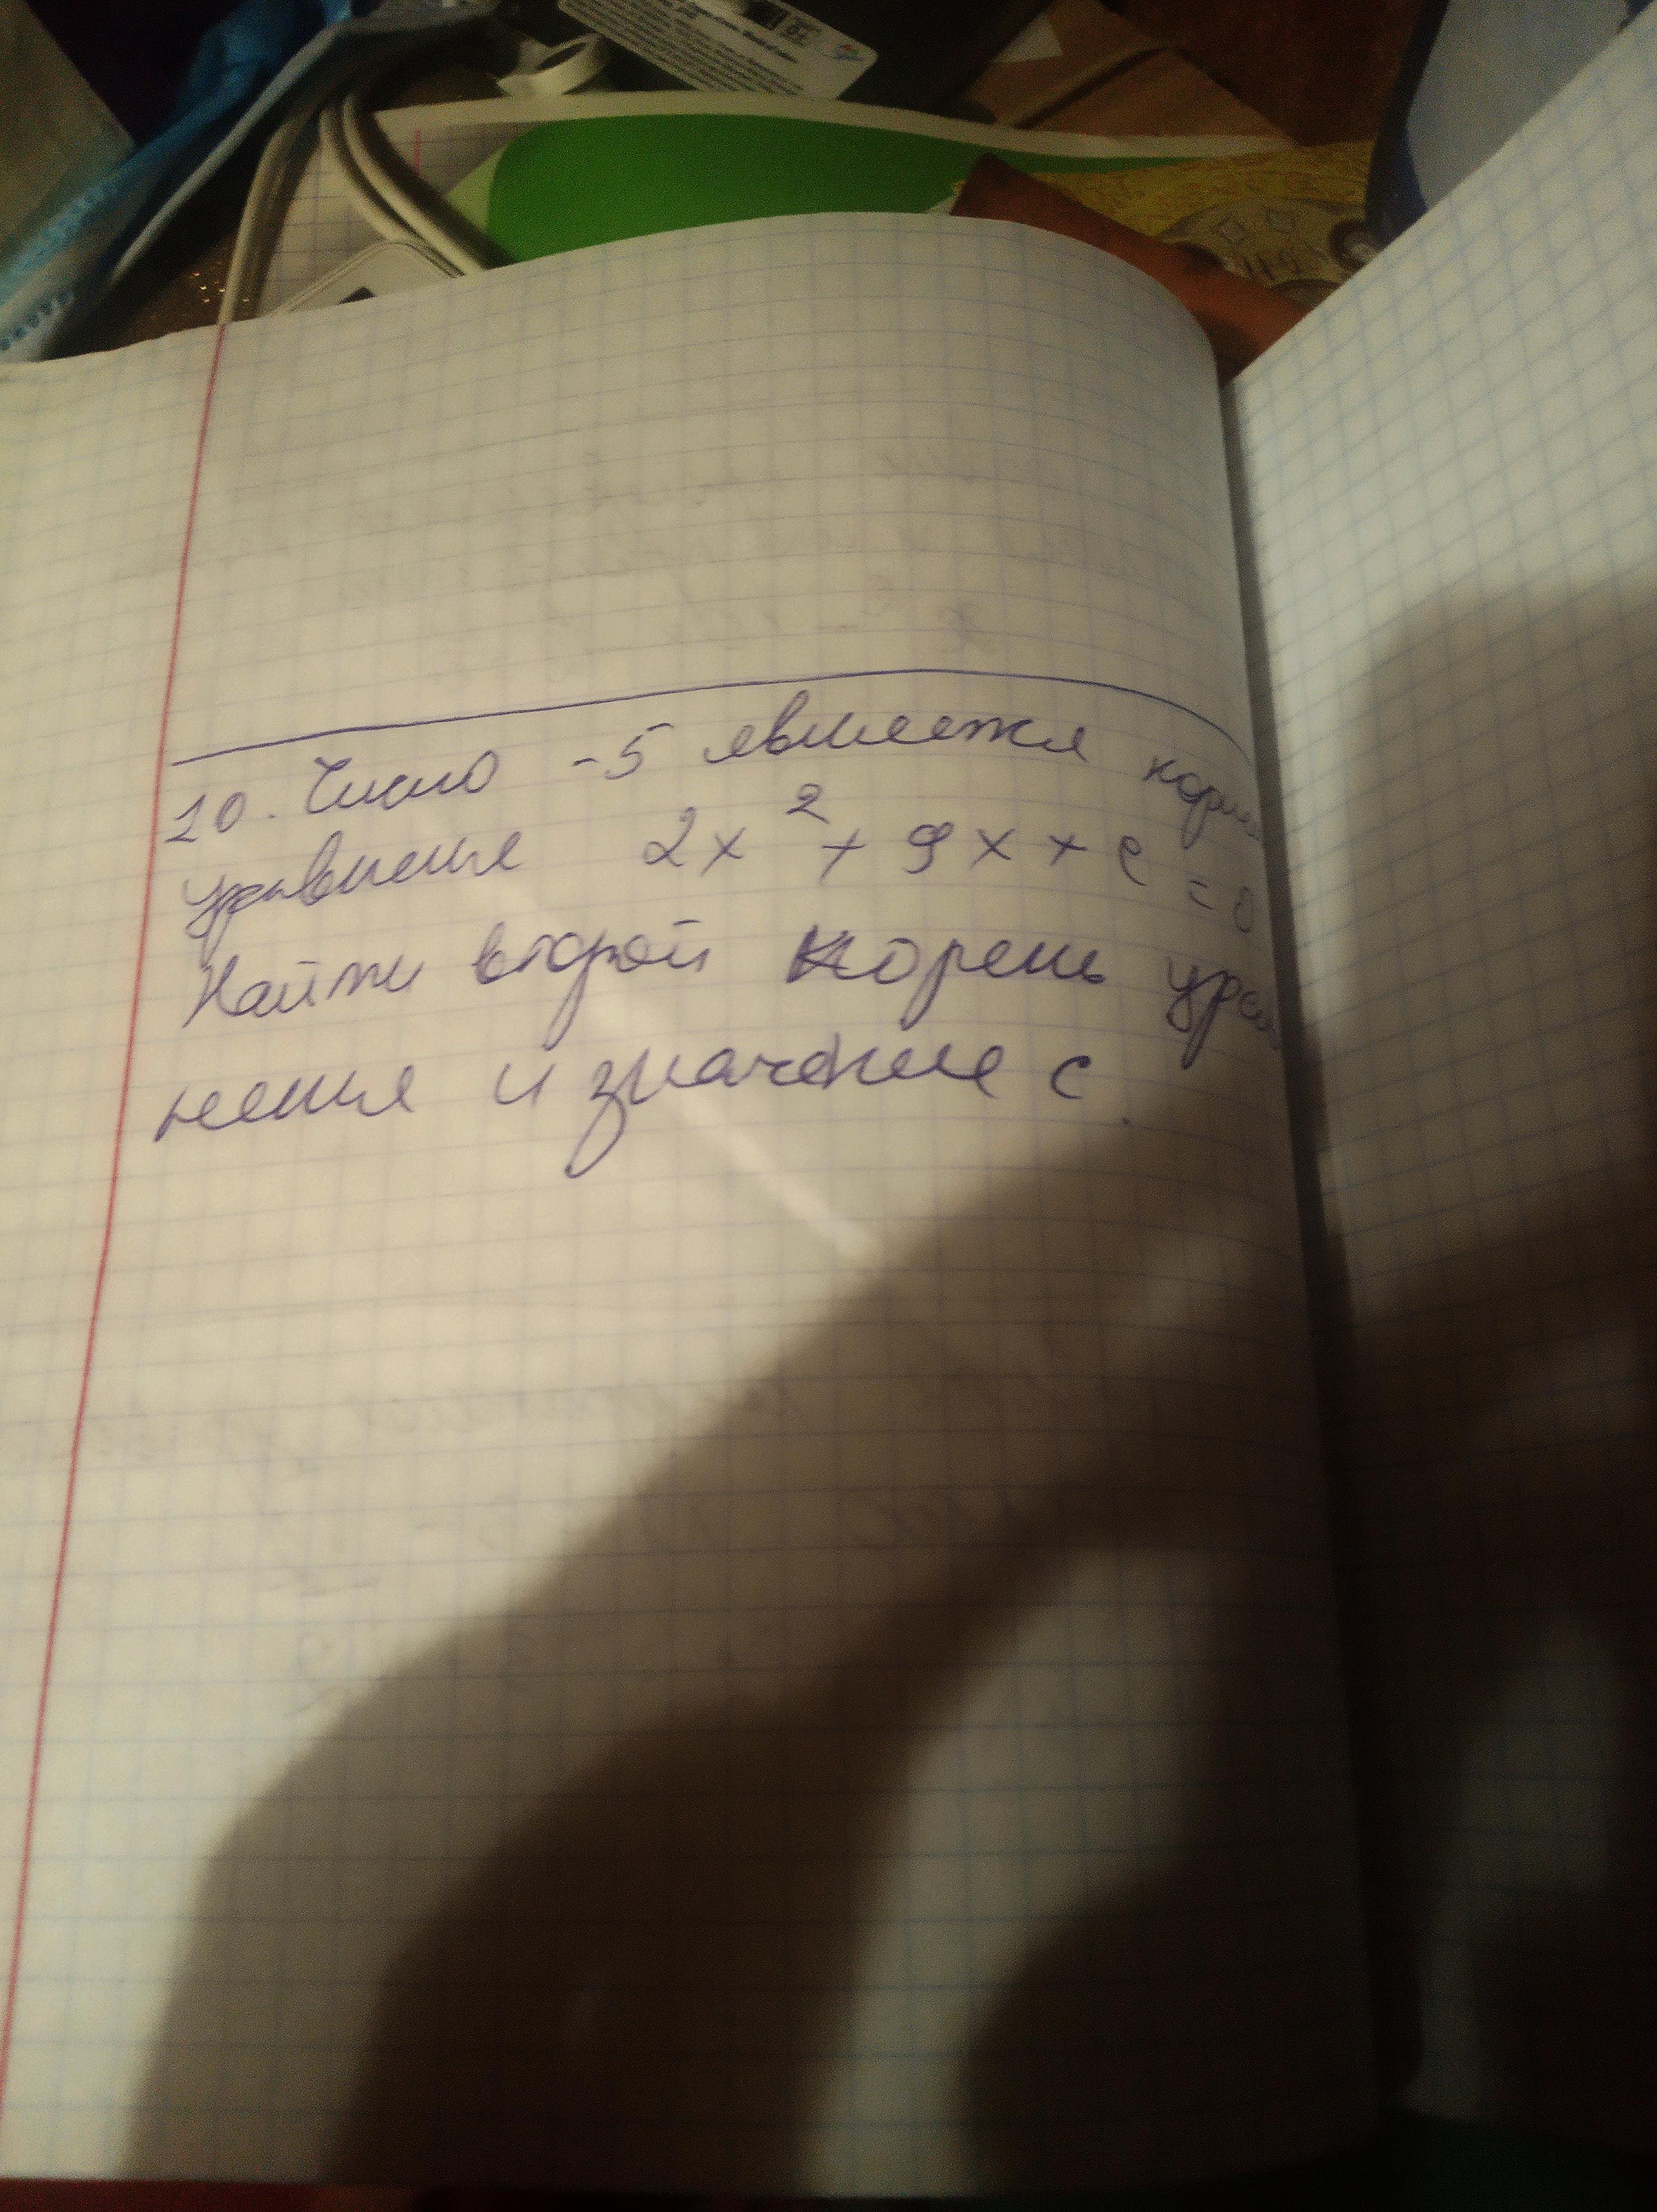 10. Число -5 является корнем
уравнения 2x² + 9x + c = 0
Найти второй корень урав
нения и значение c.